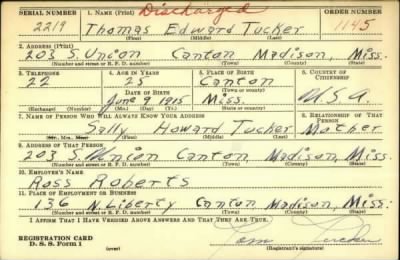 SERIAL NUMBER 1. NAME (Print) Discharged ORDER NUMBER
2219 Thomas Edward Tucker 1145
(First) (Middle) (Last)
2. ADDRESS (Print)
203 S. Union Canton Madison, Miss.
(Number and street or R. F. D. number) (Town) (County) (State)
3. TELEPHONE 4. AGE IN YEARS 5. PLACE OF BIRTH 6. COUNTRY OF CITIZENSHIP
22 25 Canton
DATE OF BIRTH (Town or county)
June 9 1915 Miss. U.S.A.
(Exchange) (Number) (Mo.) (Day) (Yr.) (State or country)
7. NAME OF PERSON WHO WILL ALWAYS KNOW YOUR ADDRESS 8. RELATIONSHIP OF THAT PERSON
Sally Howard Tucker Mother
(Mr., Mrs., Miss) (First) (Middle) (Last)
9. ADDRESS OF THAT PERSON
203 S. Union Canton Madison, Miss.
(Number and street or R. F. D. number) (Town) (County) (State)
10. EMPLOYER'S NAME
Ross Roberts
11. PLACE OF EMPLOYMENT OR BUSINESS
136 N. Liberty Canton Madison, Miss.
(Number and street or R. F. D. number) (Town) (County) (State)
I AFFIRM THAT I HAVE VERIFIED ABOVE ANSWERS AND THAT THEY ARE TRUE.
REGISTRATION CARD Tom Tucker
D. S. S. Form 1 (over) (Registrant's signature)